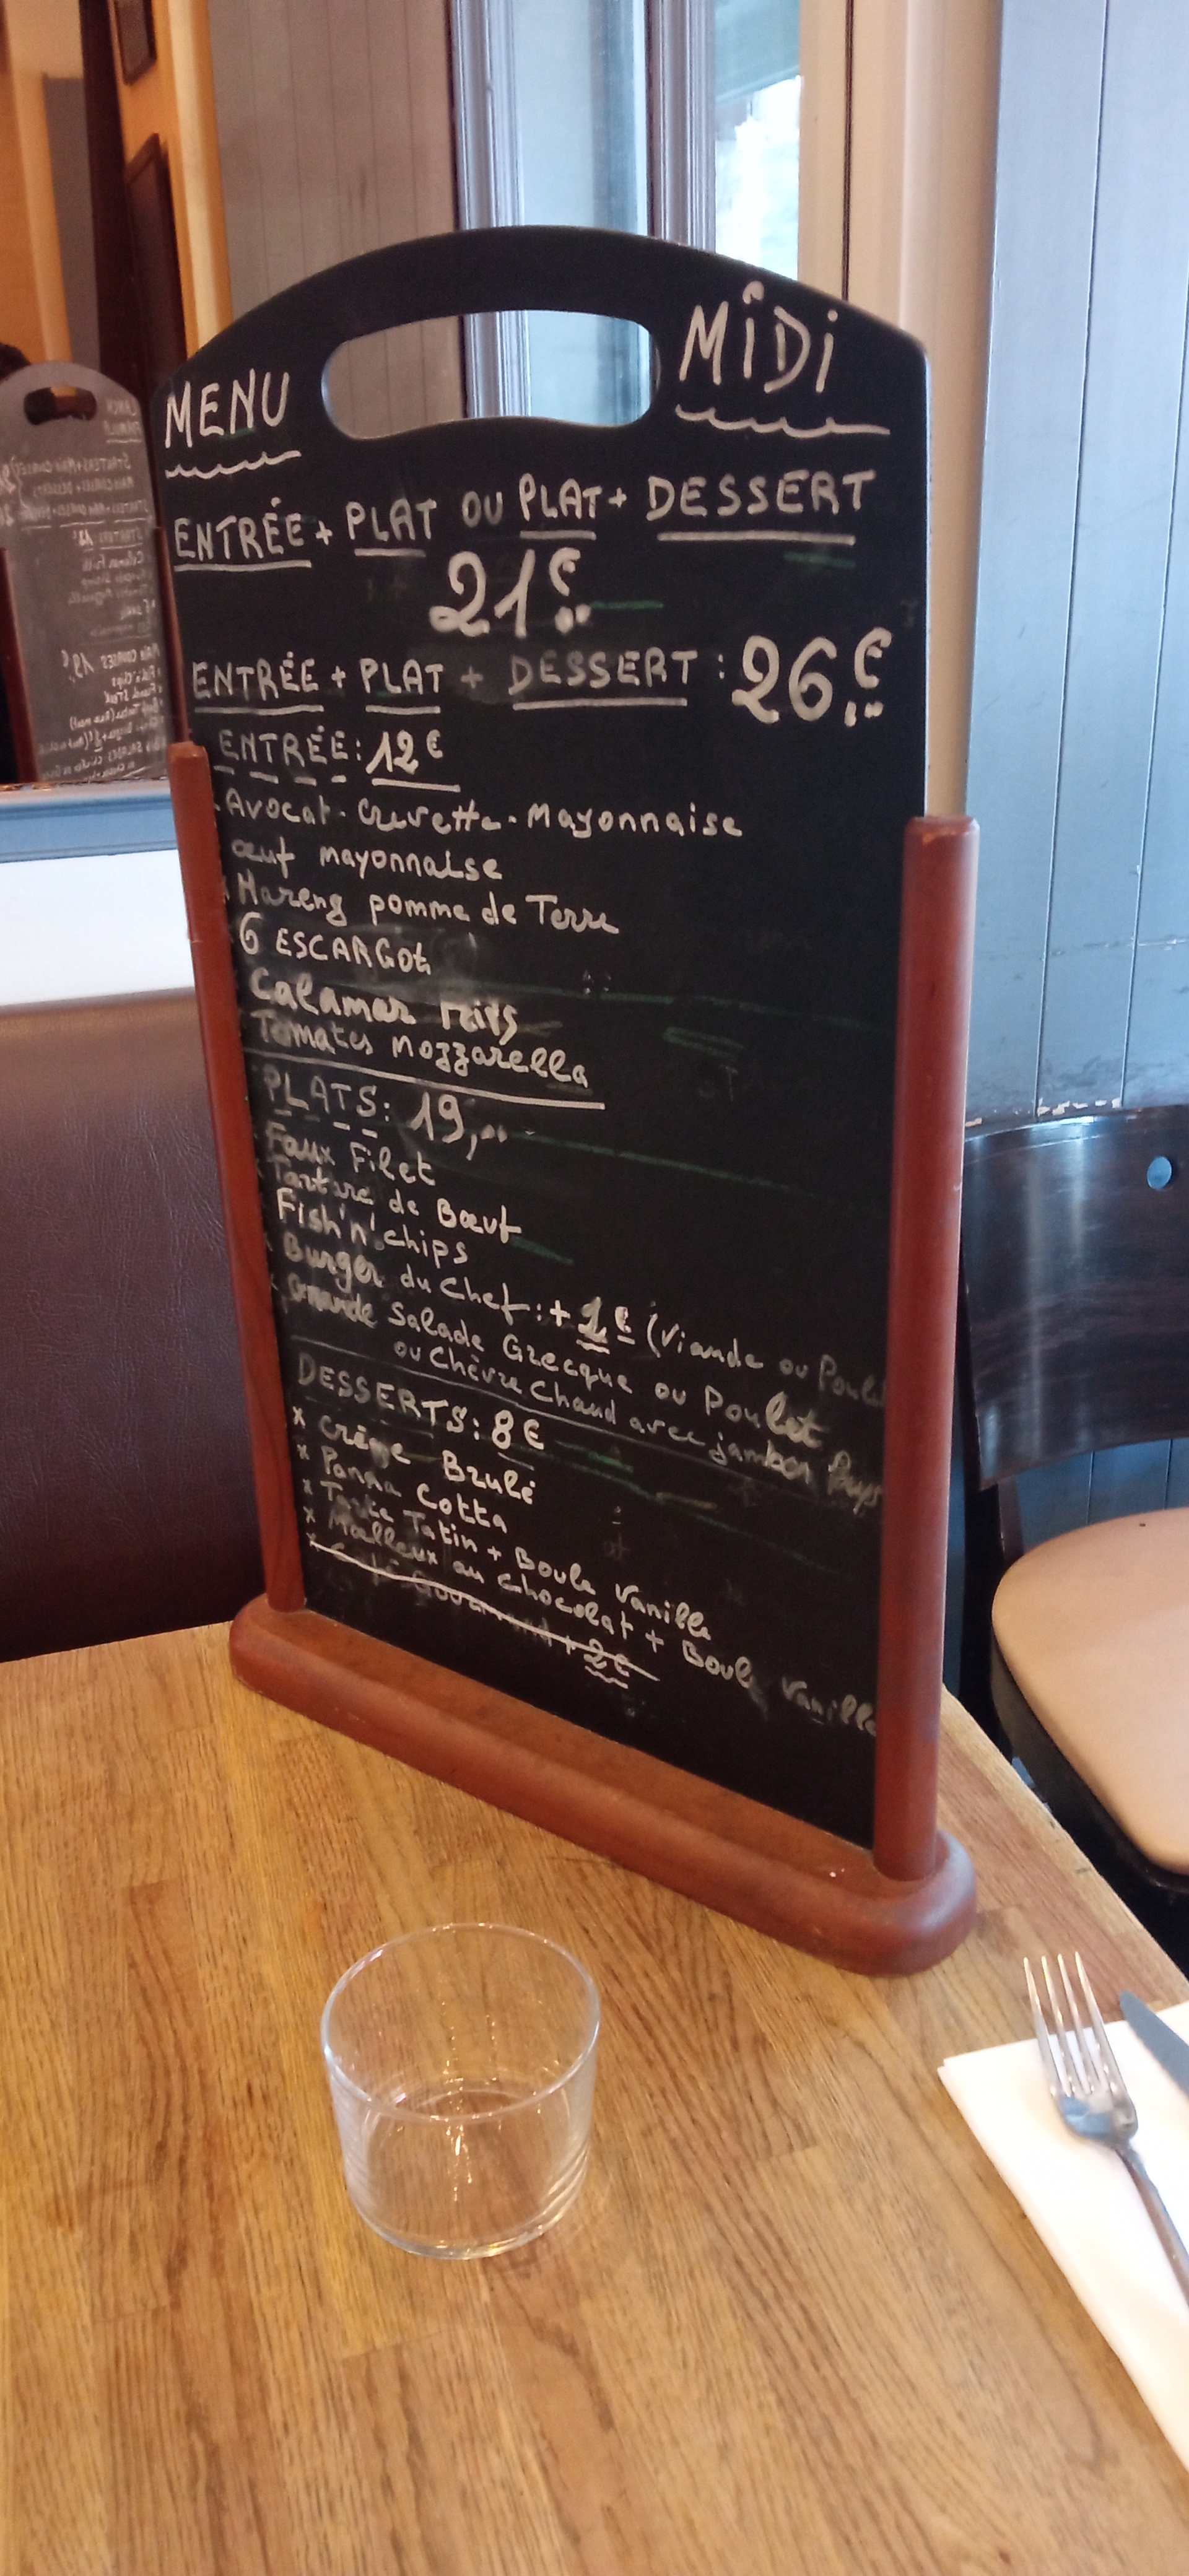 MENU MiDi
ENTRÉE + PLAT OU PLAT + DESSERT
21,€
ENTRÉE + PLAT + DESSERT : 26,€
ENTRÉE : 12€
Avocat - Crevette - Mayonnaise
œuf mayonnaise
Hareng pomme de Terre
6 ESCARGOts
Calamar frits
Tomates mozzarella
PLATS : 19,
Faux Filet
Tartare de Bœuf
Fish'n'chips
Burger du Chef : + (Viande ou Poulet
Grande Salade Grecque ou Poulet
ou Chèvre Chaud avec jambon Pays
DESSERTS : 8€
x Crème Brulé
x Panna Cotta
x Tarte Tatin + Boule Vanille
x Moelleux au chocolat + Boule Vanille
x Café Gourmand + 2€